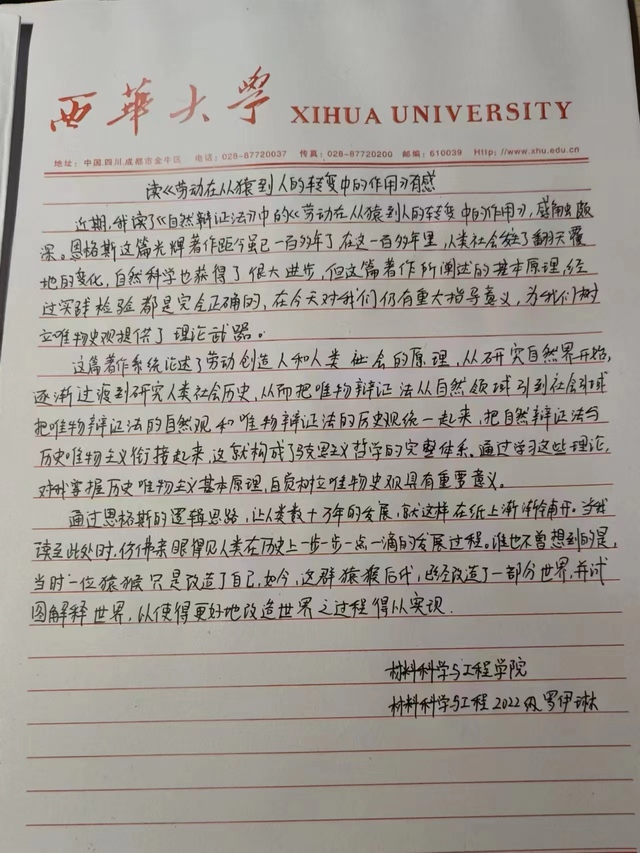 西華大学 XIHUA UNIVERSITY
地址：中国.四川.成都市金牛区 电话：028-87720037 传真：028-87720200 邮编：610039 Http://www.xhu.edu.cn
读《劳动在从猿到人的转变中的作用》有感
近期，我读了《自然辩证法》中的《劳动在从猿到人的转变中的作用》，感触颇
深。恩格斯这篇光辉著作距今虽已一百多年了在这一百多年里，人类社会发生了翻天覆
地的变化，自然科学也获得了很大进步，但这篇著作所阐述的基本原理，经
过实践检验都是完全正确的，在今天对我们仍有重大指导意义，为我们树
立唯物史观提供了理论武器。
这篇著作系统论述了劳动创造人和人类社会的原理，从研究自然界开始，
逐渐过渡到研究人类社会历史，从而把唯物辩证法从自然领域引到社会领域
把唯物辩证法的自然观和唯物辩证法的历史观统一起来，把自然辩证法与
历史唯物主义衔接起来，这就构成了马克思主义哲学的完整体系。通过学习这些理论，
对我掌握历史唯物主义基本原理，自觉树立唯物史观具有重要意义。
通过恩格斯的逻辑思路，让人类数十万年的发展，就这样在纸上渐渐铺开。当我
读至此处时，仿佛亲眼得见人类在历史上一步一步一点一滴的发展过程。谁也不曾想到的是，
当时一位猿猴只是改造了自己，如今，这群猿猴后代，已经改造了一部分世界，并试
图解释世界，以使得更好地改造世界之过程得以实现.
材料科学与工程学院
材料科学与工程2022级罗伊琳